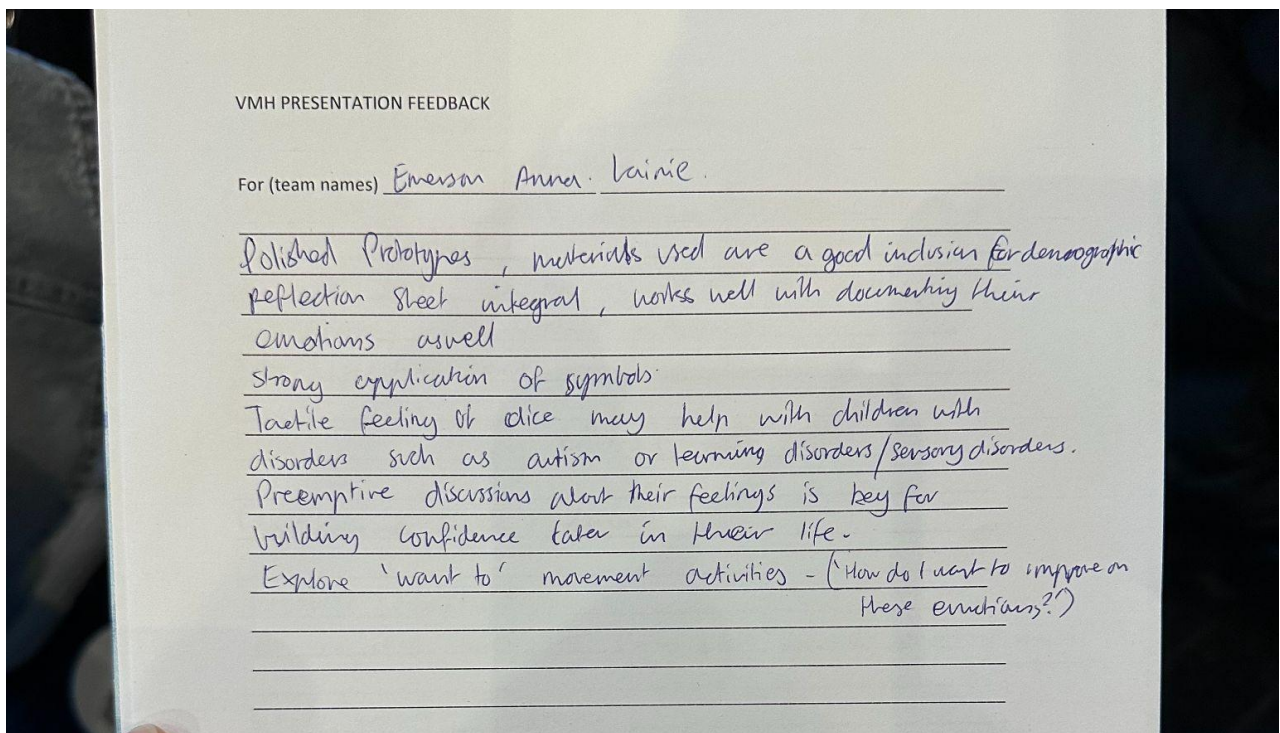 VMH PRESENTATION FEEDBACK
For (team names) Emerson Anna. Lainie.
Polished Prototypes, materials used are a good inclusion for demographic
reflection sheet integral, works well with documenting their
emotions aswell
strong application of symbols.
Tactile feeling of dice may help with children with
disorders such as autism or learning disorders/sensory disorders.
Preemptive discussions about their feelings is key for
building confidence later in their life.
Explore 'want to' movement activities - ('How do I want to improve on
these emotions?')